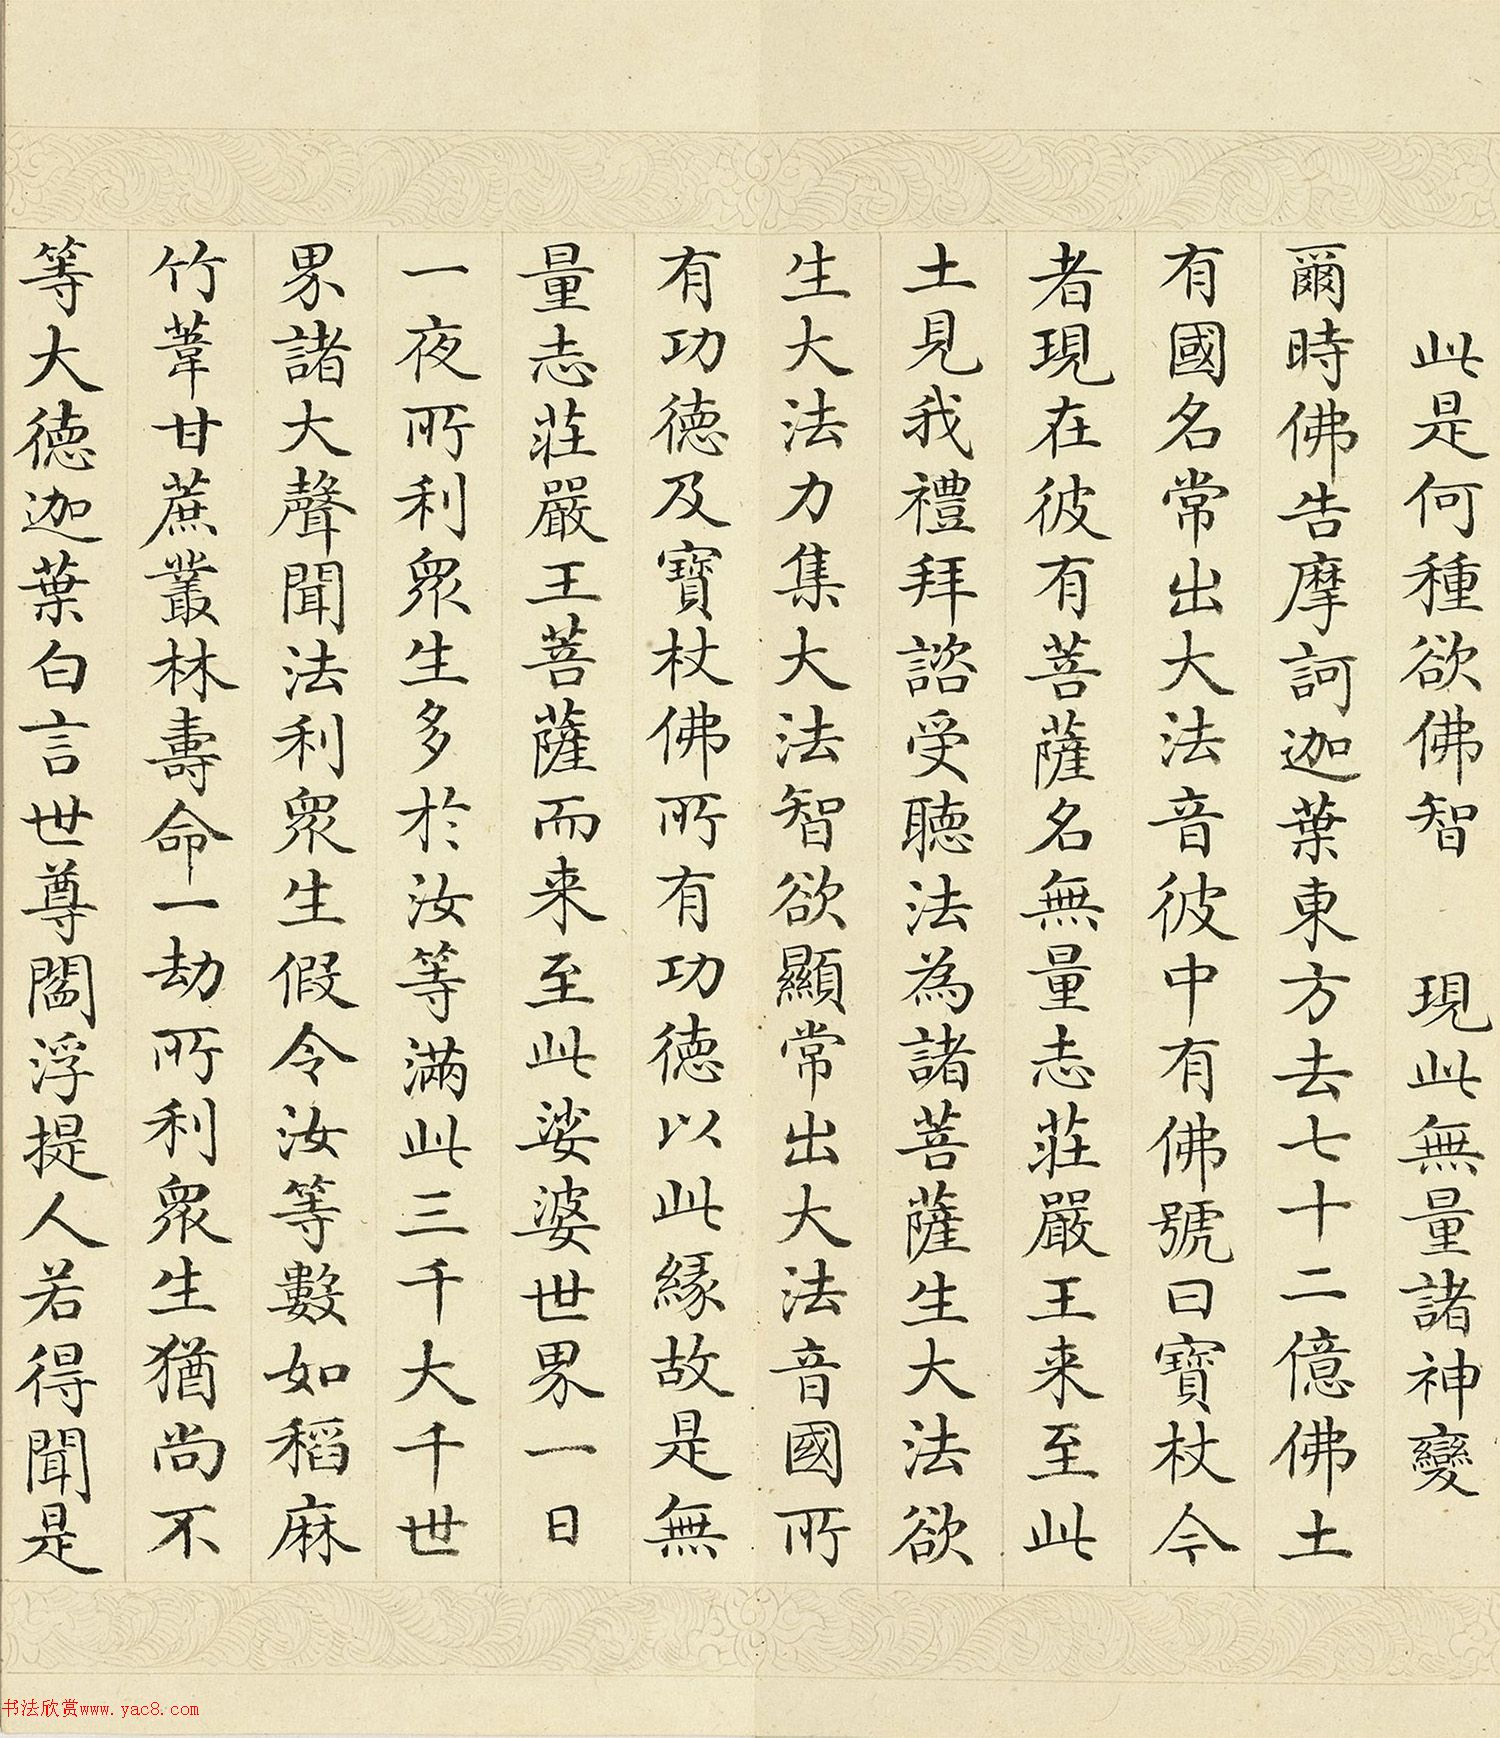 此是何種欲佛智　現此無量諸神變
爾時佛告摩訶迦葉東方去七十二億佛土
有國名常出大法音彼中有佛號曰寶杖今
者現在彼有菩薩名無量志莊嚴王来至此
土見我禮拜諮受聽法為諸菩薩生大法欲
生大法力集大法智欲顯常出大法音國所
有功德及寶杖佛所有功德以此緣故是無
量志莊嚴王菩薩而来至此娑婆世界一日
一夜所利眾生多於汝等滿此三千大千世
界諸大聲聞法利眾生假令汝等數如稻麻
竹葦甘蔗叢林壽命一劫所利眾生猶尚不
等大德迦葉白言世尊閻浮提人若得聞是
书法欣赏www.yac8.com